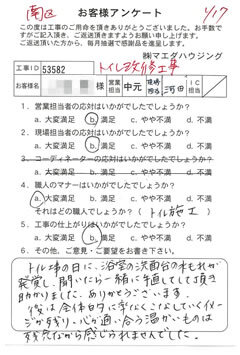 南区
お客様アンケート
1/17
この度は工事のご用命を頂きありがとうございました。お手数で
すがご記入頂き、ご返送頂きますようお願い申し上げます。
ご返送頂いた方から、毎月抽選で感謝品を進呈します。
㈱マエダハウジング
工事ID 53582 トイレ改修工事
お客様名 様 営業担当 中元 現場担当 河田 IC担当
1. 営業担当者の応対はいかがでしたでしょうか?
a. 大変満足 b. 満足 c. やや不満 d. 不満
2. 現場担当者の応対はいかがでしたでしょうか?
a. 大変満足 b. 満足 c. やや不満 d. 不満
3. コーディネーターの応対はいかがでしたでしょうか?
a. 大変満足 b. 満足 c. やや不満 d. 不満
4. 職人のマナーはいかがでしたでしょうか?
a. 大変満足 b. 満足 c. やや不満 d. 不満
それはどの職人でしょうか?(トイレ施工)
5. 工事の仕上がりはいかがでしたでしょうか?
a. 大変満足 b. 満足 c. やや不満 d. 不満
6. その他、ご意見・ご要望をお聞かせ下さい。
トイレ工事の日に、浴室の洗面台の水もれが
発覚し、聞いたら一緒に直してして頂き
助かりました。ありがとうございます。
後は全体的に
が残り、心が通い合う温かいものは
残念ながら感じられませんでした。